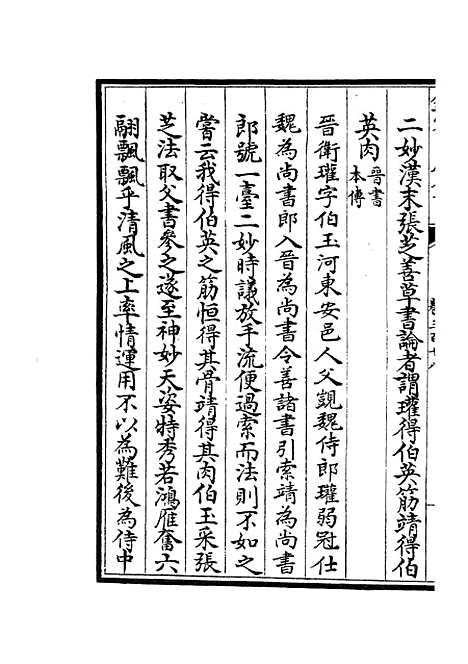 二妙漢末張芝善草書論者謂瓘得伯英筋靖得伯
英肉晉書本傳
晉衛瓘字伯玉河東安邑人父覬魏侍郎瓘弱冠仕
魏為尚書郎入晉為尚書令善諸書引索靖為尚書
郎號一臺二妙時議放手流便過索而法則不如之
嘗云我得伯英之筋恒得其骨靖得其肉伯玉采張
芝法取父書參之遂至神妙天姿特秀若鴻雁奮六
翮飄飄乎清風之上率情運用不以為難後為侍中